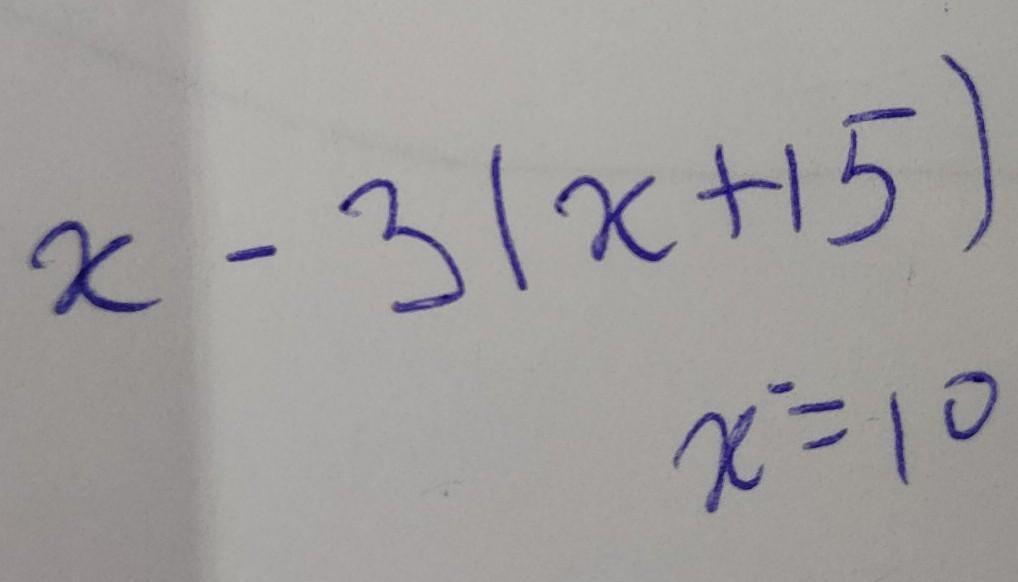 x - 3(x+15)
x = 10